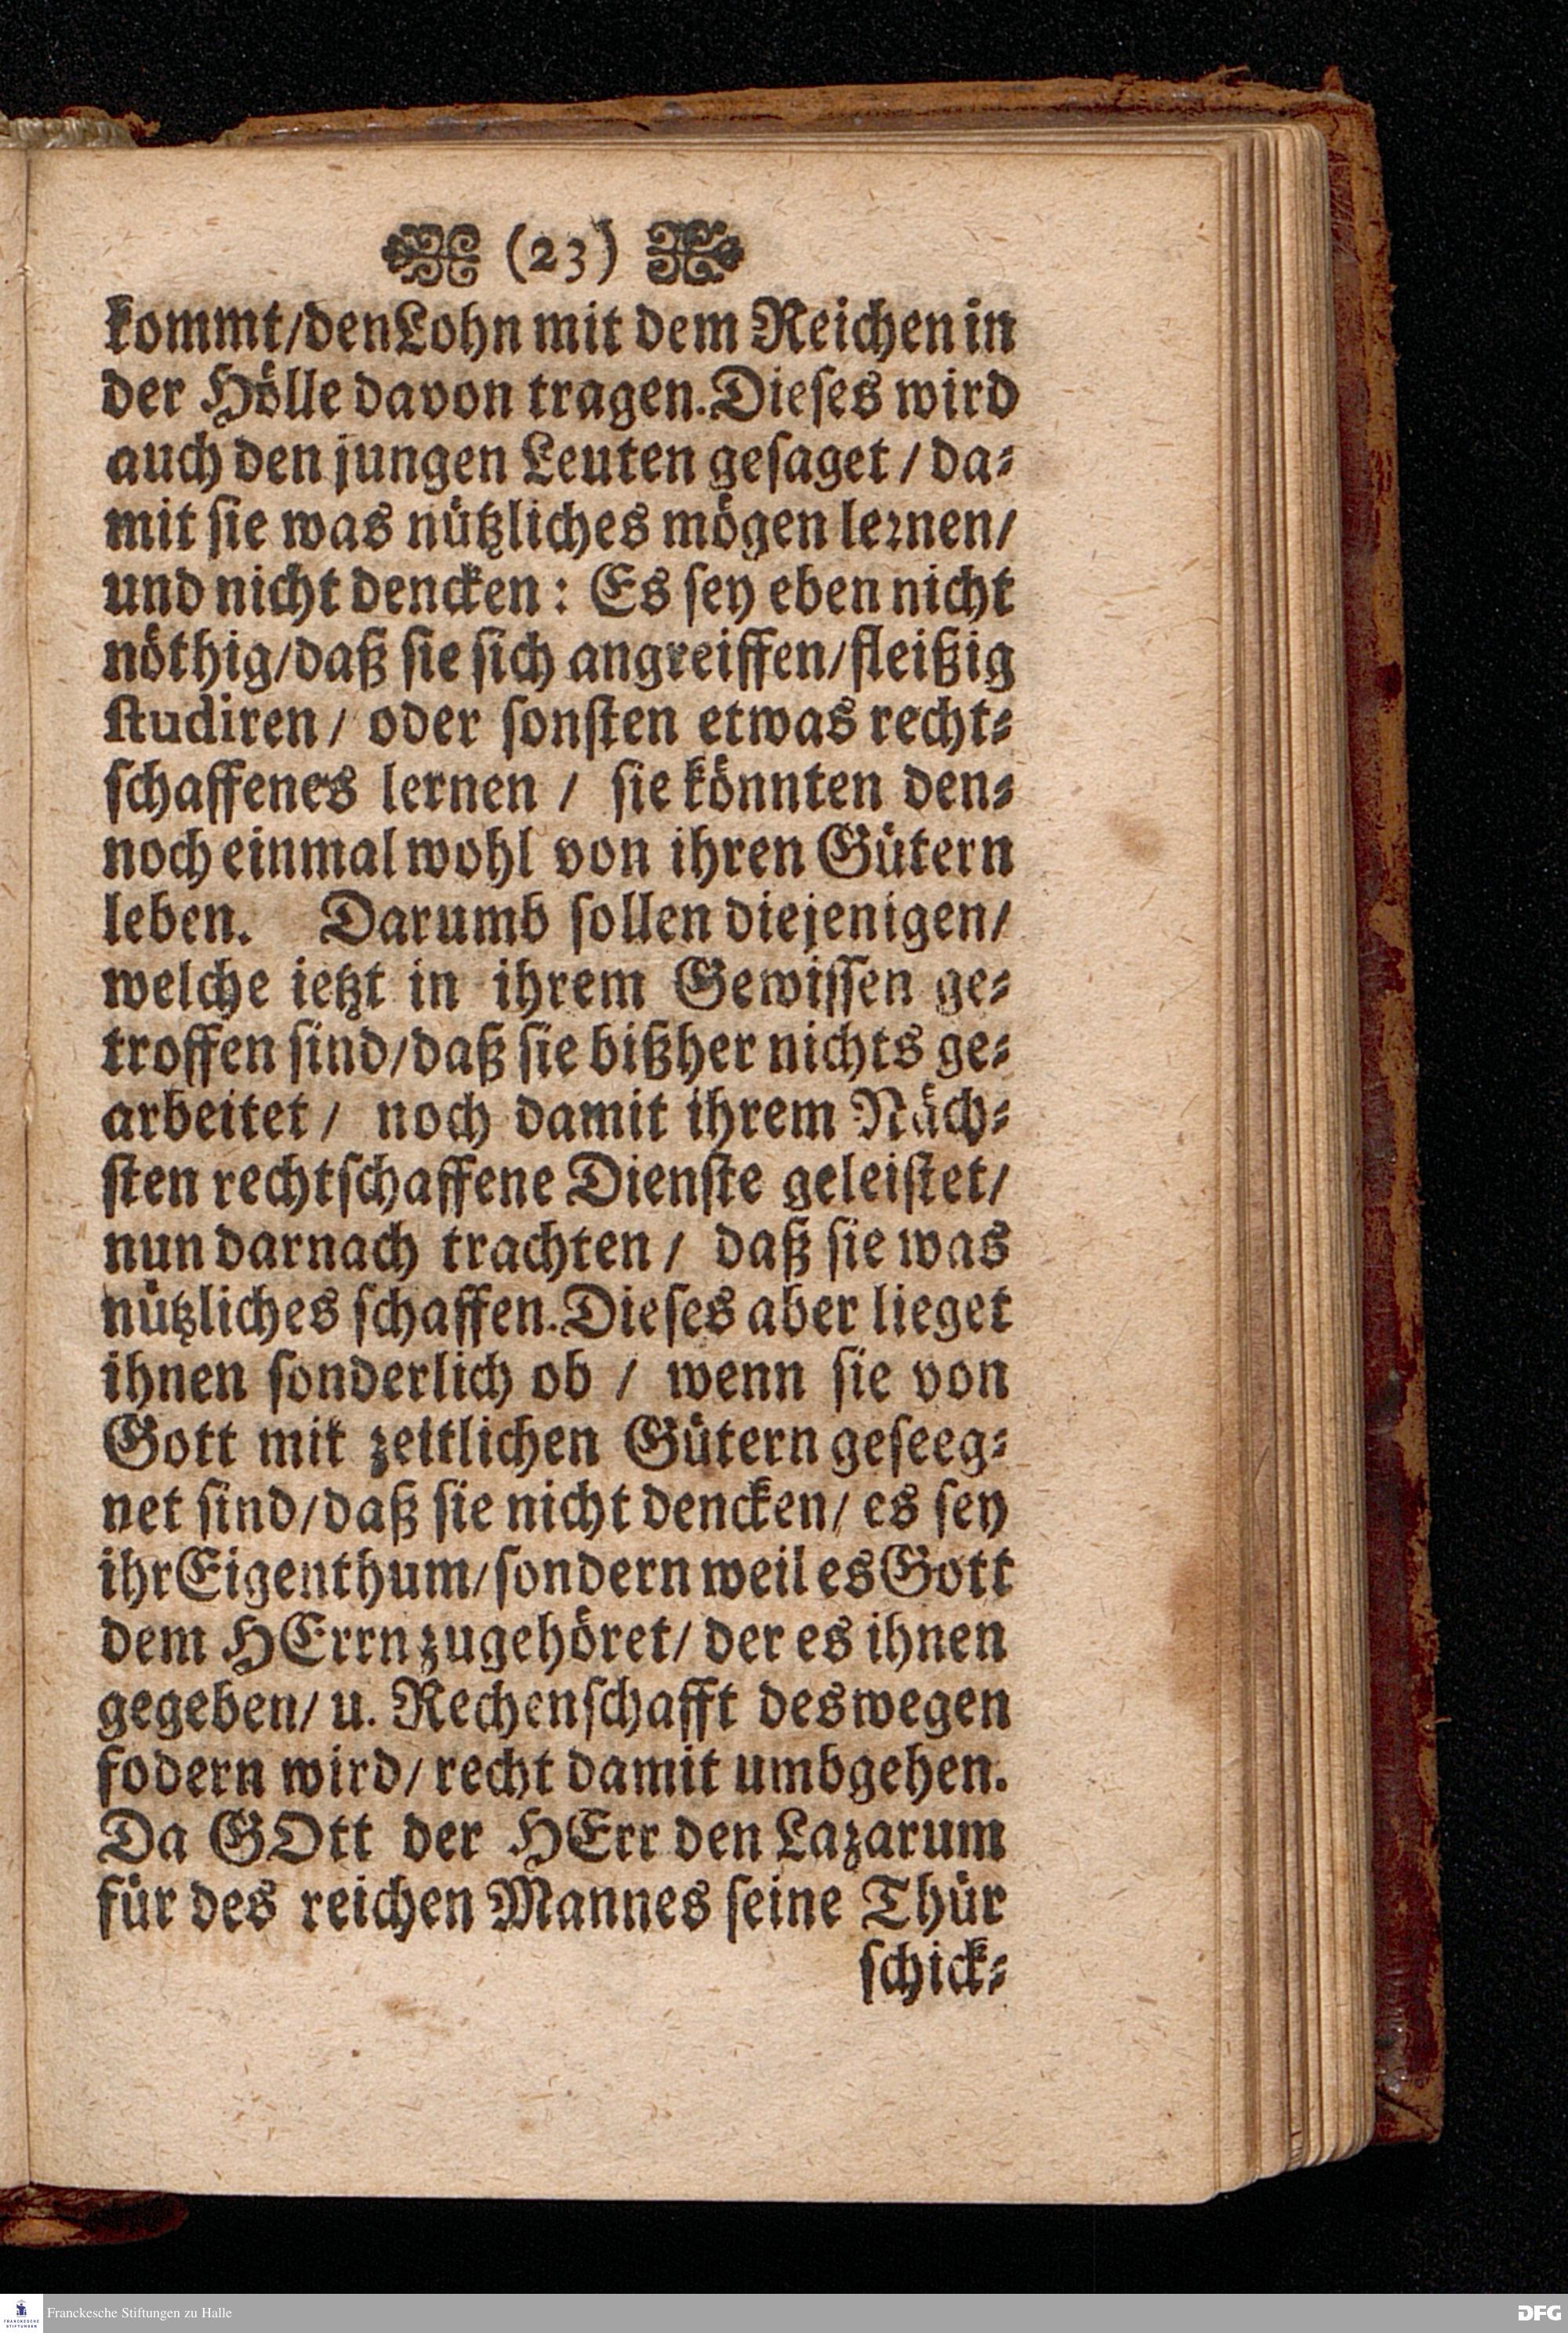 (23)
kommt/den Lohn mit dem Reichen in
der Hölle davon tragen. Dieses wird
auch den jungen Leuten gesaget / da-
mit sie was nützliches mögen lernen/
und nicht dencken: Es sey eben nicht
nöthig/daß sie sich angreiffen/fleißig
studiren/ oder sonsten etwas recht-
schaffenes lernen / sie könnten den-
noch einmal wohl von ihren Gütern
leben. Darumb sollen diejenigen/
welche ietzt in ihrem Gewissen ge-
troffen sind/daß sie bißher nichts ge-
arbeitet/ noch damit ihrem Näch-
sten rechtschaffene Dienste geleistet/
nun darnach trachten/ daß sie was
nützliches schaffen. Dieses aber lieget
ihnen sonderlich ob / wenn sie von
Gott mit zeitlichen Gütern geseeg-
net sind/daß sie nicht dencken/ es sey
ihr Eigenthum/sondern weil es Gott
dem HErrn zugehöret/ der es ihnen
gegeben/ u. Rechenschafft deswegen
fodern wird/ recht damit umbgehen.
Da GOtt der HErr den Lazarum
für des reichen Mannes seine Thür
schick-
FRANCKESCHE
STIFTUNGEN
Franckesche Stiftungen zu Halle
DFG